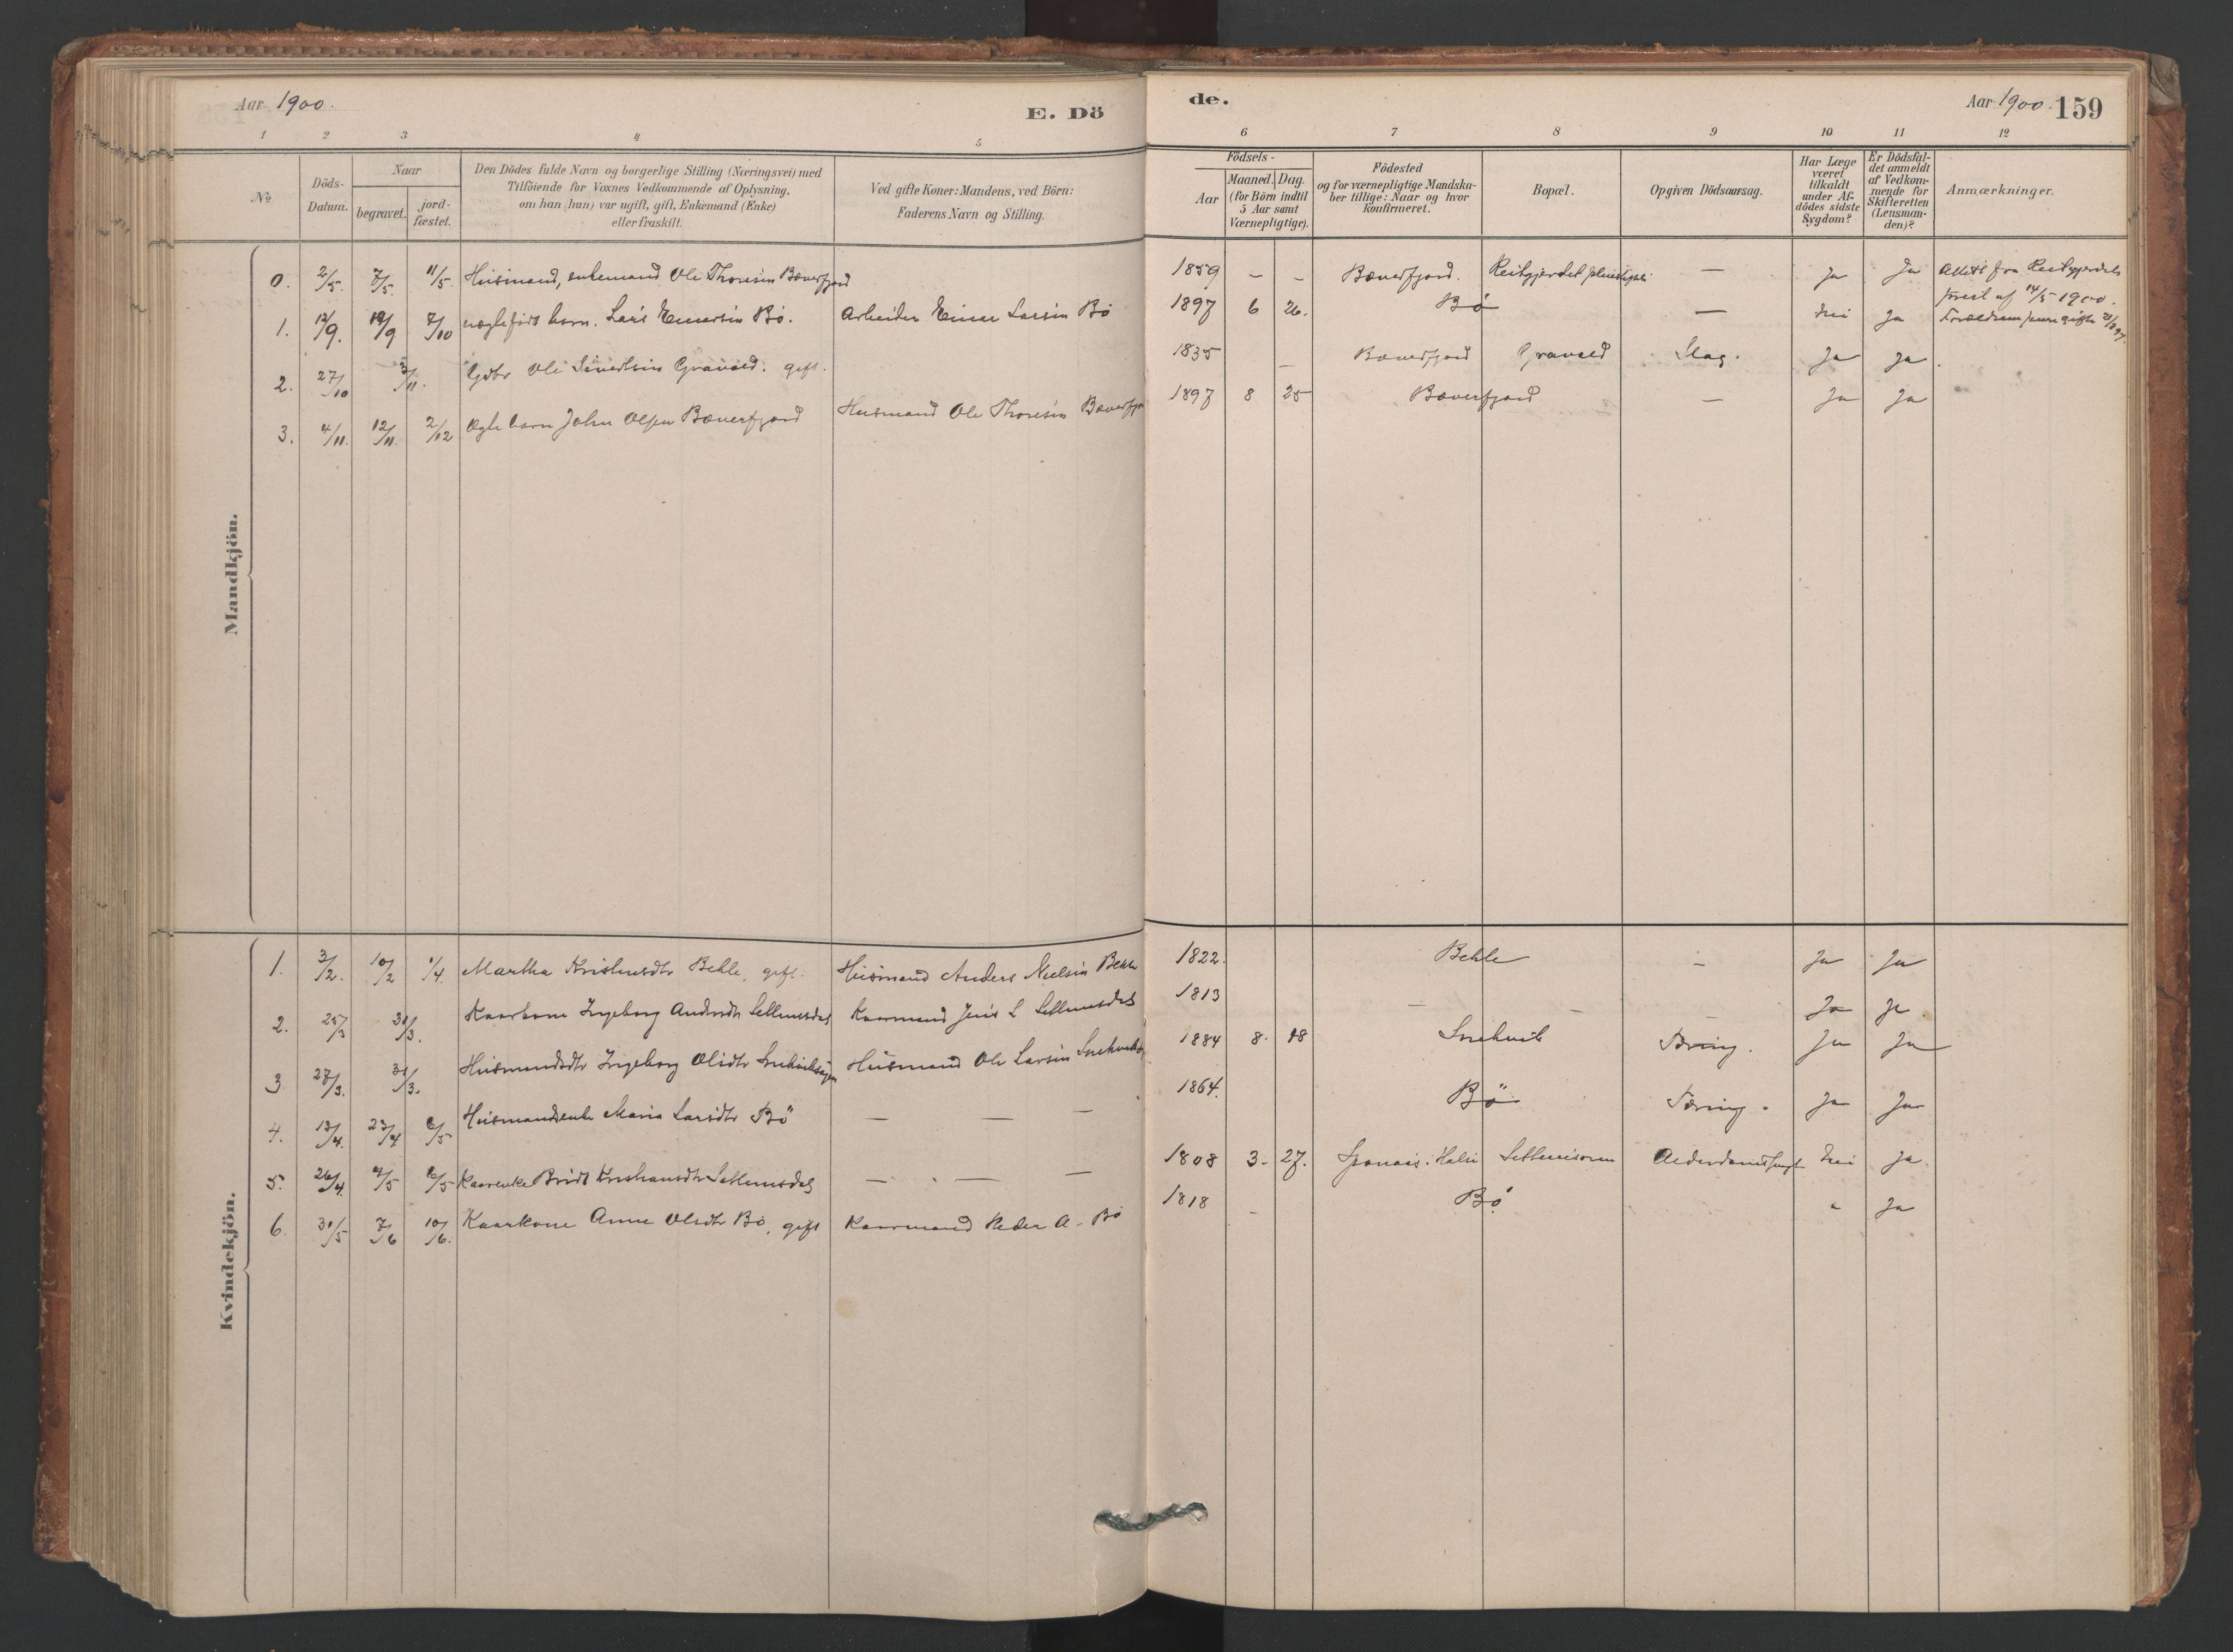 Aar 1900.
E. Dö
de.
Aar 1900. 159
1 2 3 4 5 6 7 8 9 10 11 12
No
Döds-Datum.
Naar
begravet.
jord-fæstet.
Den Dödes fulde Navn og borgerlige Stilling (Næringsvei) med
Tilföiende for Voxnes Vedkommende af Oplysning.
om han (hun) var ugift, gift, Enkemand (Enke)
eller fraskilt.
Ved gifte Koner: Mandens, ved Börn:
Faderens Navn og Stilling.
Födsels-
Aar
Maaned. Dag.
(for Börn indtil
5 Aar samt
Værnepligtige).
Födested
og for værnepligtige Mandska-
ber tillige: Naar og hvor
Konfirmeret.
Bopæl.
Opgiven Dödsaarsag.
Har Læge
været
tilkaldt
under Af-
dödes sidste
Sygdom?
Er Dödsfal-
det anmeldt
af Vedkom-
mende for
Skifteretten
(Lensman-
den)?
Anmærkninger.
Mandkjön.
0. 2/5. 7/5. 11/5. Husmand, enkemand Ole Thoresen Bæverfjord 1859 – – Bæverfjord. — Ja Ja
14/5 1900.
1. 12/9. 19/9 7/10 uægtefødt barn. Lars Einarsen Bö. Arbeider Einar Larsen Bö 1897 6 26. Bö — Nei Ja
2. 27/10 3/11. Gdbr Ole Sivertsen Gravald. gift. 1835 – Bæverfjord Gravald Slag. Ja Ja.
3. 4/11. 12/11. 2/12 Ægte barn John Olsen Bæverfjord Husmand Ole Thoresen 1897 8 25 Bæverfjord — Ja Ja
Kvindekjön.
1. 3/2. 10/2 1/4. Martha Behle, gift. Husmand Anders Nielsen Behle 1822. Behle – Ja Ja
2. 25/3 31/3. Kaarkone Ingeborg Kaarmand Jens L 1813 – – – Ja Ja.
3 27/3. 31/3. Ingeborg Olsdtr Husmand Ole Larsen 1884 8. 18 Tæring. Ja Ja
4. 13/4. 23/4 6/5 Husmandsenke Maria Larsdtr Bö — — – 1864. Bö Tæring. Ja Ja
5. 26/4. 4/5 6/5 Kaarenke — — — 1808 3. 27. Nei Ja.
6. 31/5 7/6 10/6. Kaarkone Anne Olsdtr Bö, gift Kaarmand Peder A. Bö 1818 – Bö " Ja